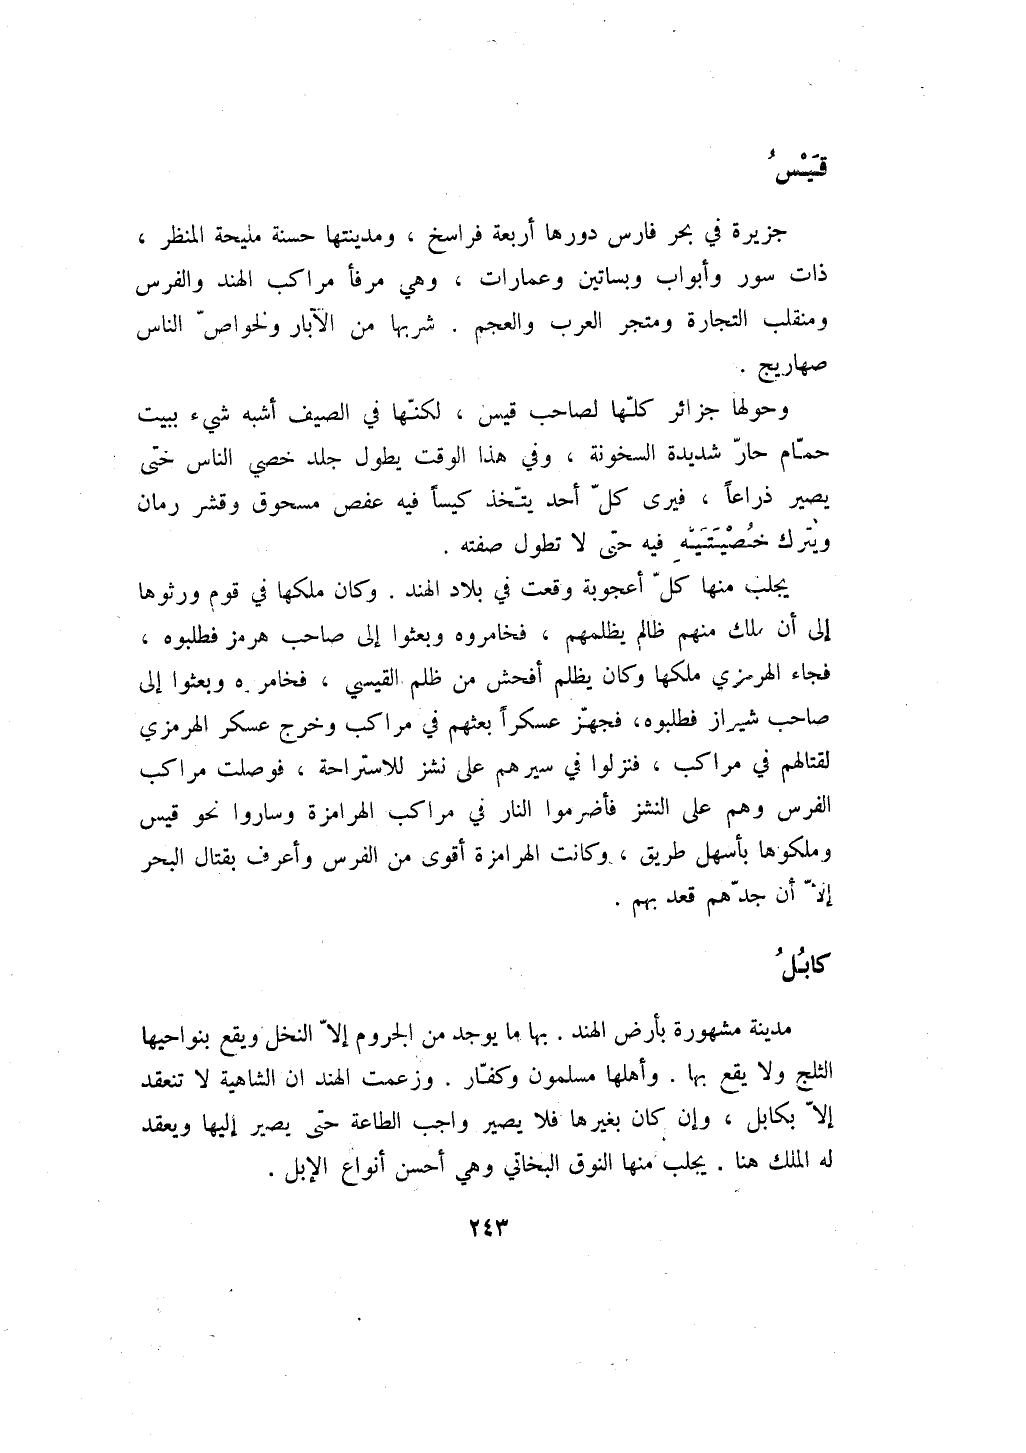 قَيْسُ
جزيرة في بحر فارس دورها أربعة فراسخ ، ومدينتها حسنة مليحة المنظر ،
ذات سور وأبواب وبساتين وعمارات ، وهي مرفأ مراكب الهند والفرس
ومنقلب التجارة ومتجر العرب والعجم . شربها من الآبار ولخواصّ الناس
صهاريج .
وحولها جزائر كلّها لصاحب قيس ، لكنّها في الصيف أشبه شيء ببيت
حمّام حارّ شديدة السخونة ، وفي هذا الوقت يطول جلد خصي الناس حتّى
يصير ذراعاً ، فيرى كلّ أحد يتّخذ كيساً فيه عفص مسحوق وقشر رمان
ويُترك خُصْيَتَيْهِ فيه حتّى لا تطول صفته .
يجلب منها كلّ أعجوبة وقعت في بلاد الهند . وكان ملكها في قوم ورثوها
إلى أن ملك منهم ظالم يظلمهم ، فخامروه وبعثوا إلى صاحب هرمز فطلبوه ،
فجاء الهرمزي ملكها وكان يظلم أفحش من ظلم القيسي ، فخامروه وبعثوا إلى
صاحب شيراز فطلبوه، فجهّز عسكراً بعثهم في مراكب وخرج عسكر الهرمزي
لقتالهم في مراكب ، فنزلوا في سيرهم على نشز للاستراحة ، فوصلت مراكب
الفرس وهم على النشز فأضرموا النار في مراكب الهرامزة وساروا نحو قيس
وملكوها بأسهل طريق ، وكانت الهرامزة أقوى من الفرس وأعرف بقتال البحر
إلاّ أن جدّهم قعد بهم .
كابُلُ
مدينة مشهورة بأرض الهند . بها ما يوجد من الجروم إلاّ النخل ويقع بنواحيها
الثلج ولا يقع بها . وأهلها مسلمون وكفّار . وزعمت الهند ان الشاهية لا تنعقد
إلاّ بكابل ، وإن كان بغيرها فلا يصير واجب الطاعة حتّى يصير إليها ويعقد
له الملك هنا . يجلب منها النوق البخاتي وهي أحسن أنواع الإبل .
٢٤٣